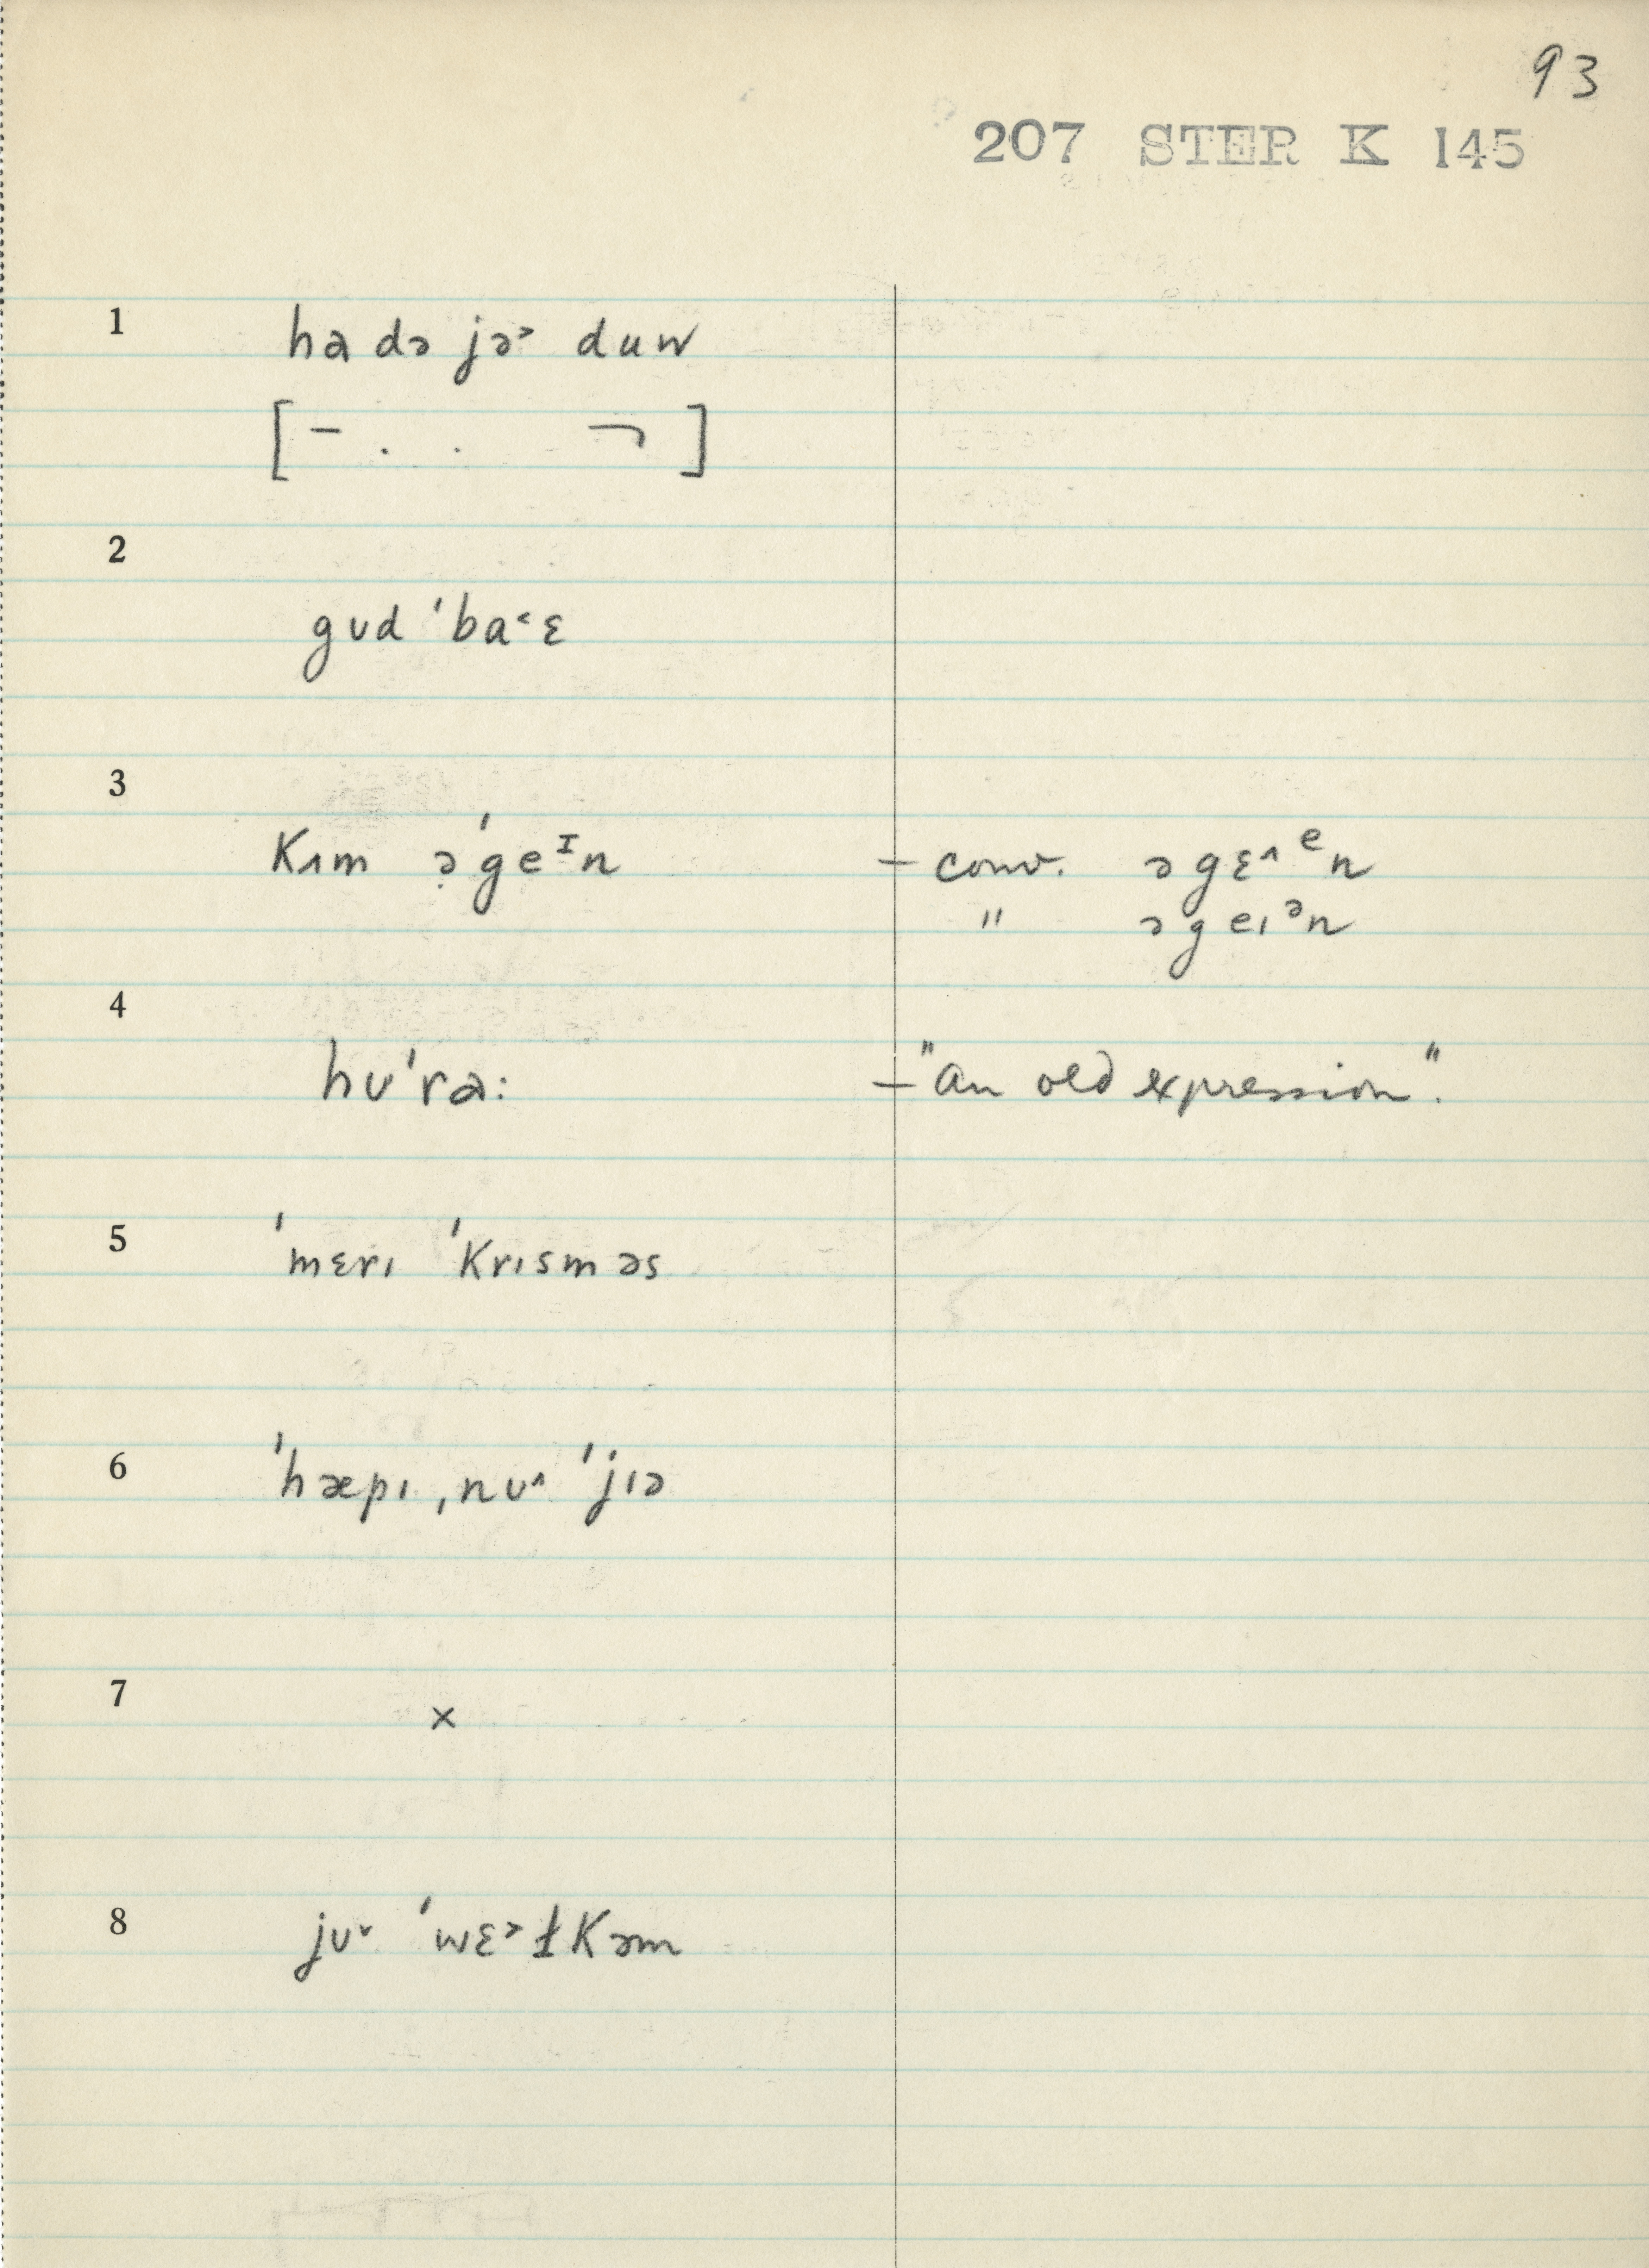 93
207 STER K 145
1 ha də jə˃ duw
[ – . . ¬ ]
2
gʊd ˈba˂ɛ
3
Kʌm ə̣ˈgeᴵn – conv. əgɛ^ᵉn
" əgeɪᵊn
4
hʊˈra: – "an old expression".
5 ˈmɛrɪ ˈKrɪsməs
6 ˈhæpɪ ˌnʊ^ ˈjɪə
7 ×
8 jʊ˅ ˈwɛ˃ɫKəm